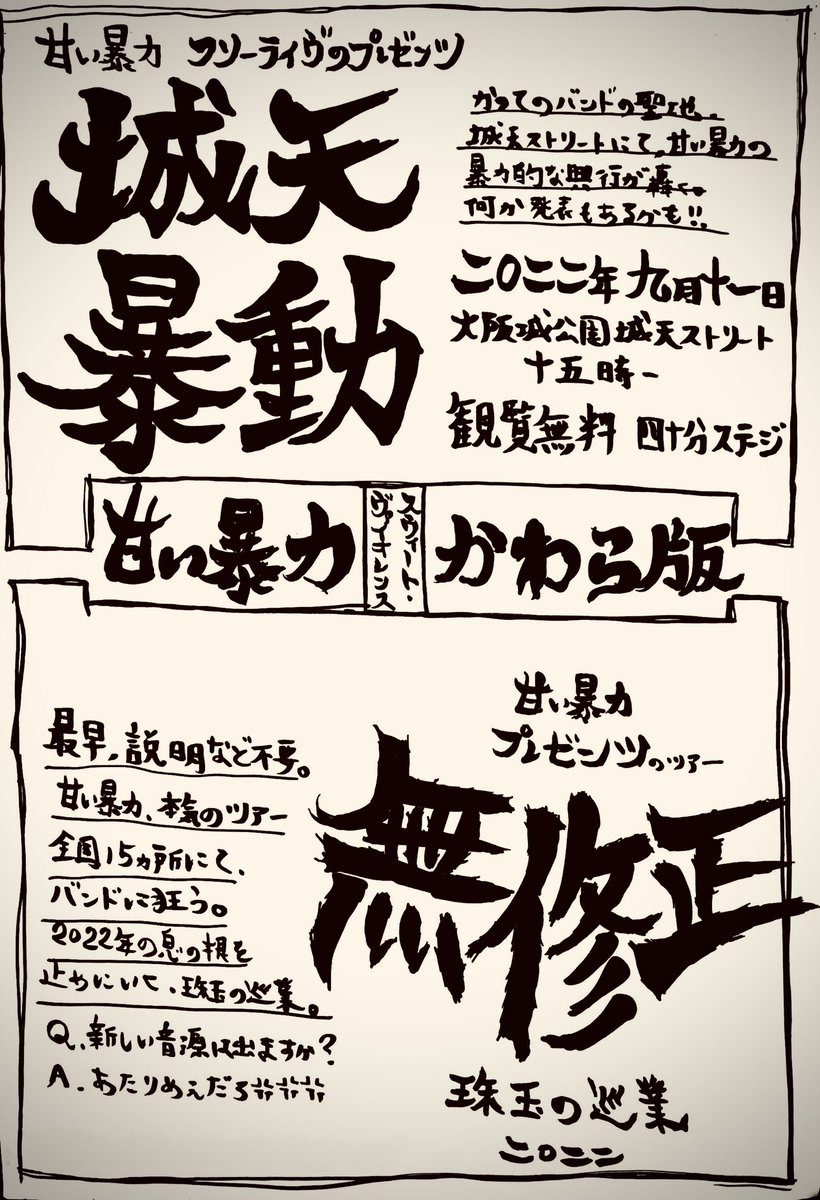 甘い暴力 フリーライヴのプレゼンツ
城天
暴動
かつてのバンドの聖地、
城天ストリートにて、甘い暴力の
暴力的な興行が轟く。
何か発表もあるかも!!
二〇二二年 九月十一日
大阪城公園 城天ストリート
十五時〜
観覧無料 四十分ステージ
甘い暴力
スウィート・
ヴァイオレンス
かわら版
甘い暴力
プレゼンツのツアー
無修正
珠玉の巡業
二〇二二
最早、説明など不要。
甘い暴力、本気のツアー
全国15ヵ所にて、
バンドに狂う。
2022年の息の根を
止めにいく、珠玉の巡業。
Q.新しい音源は出ますか?
A.あたりめぇだろ